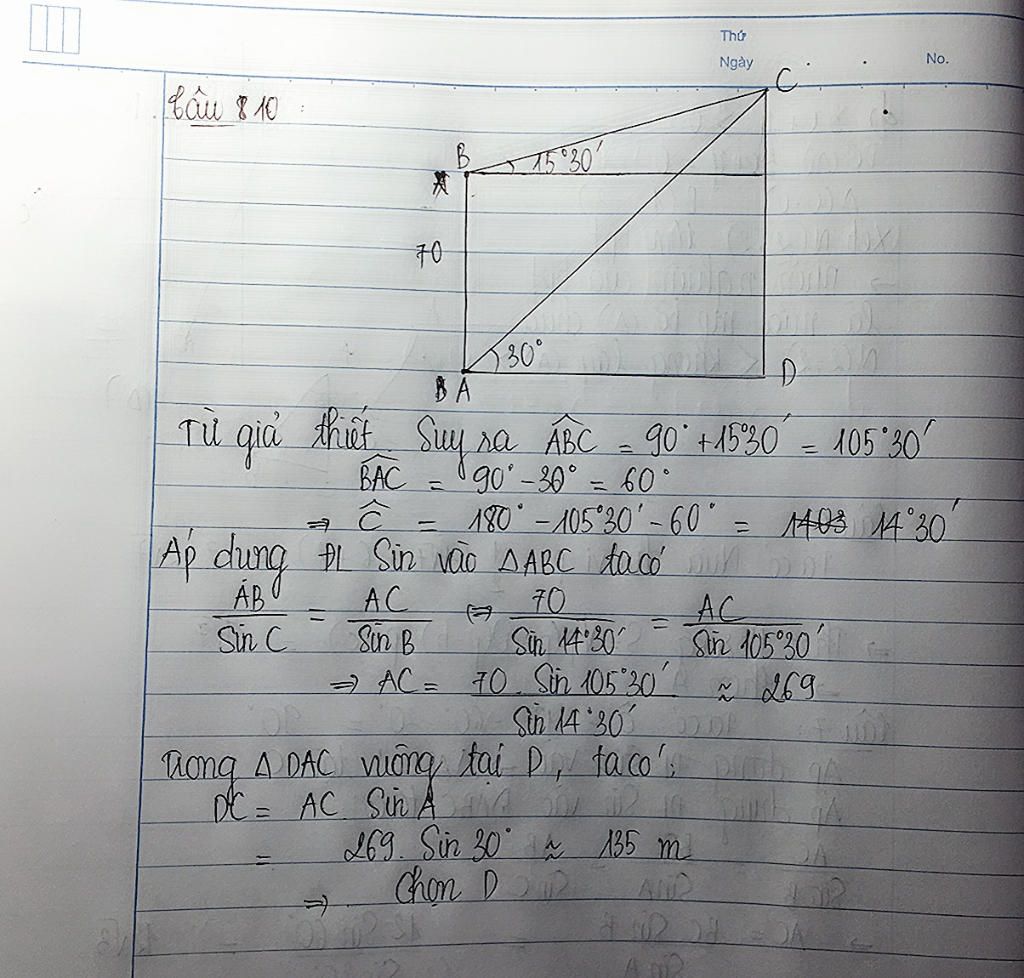 Thứ
Ngày No.
Câu 10 :
C
B 15°30'
70
30°
A D
Từ giả thiết Suy ra ABC = 90° + 15°30' = 105°30'
BAC = 90° - 30° = 60°
⇒ C = 180° - 105°30' - 60° = 14°30'
Áp dung ĐL Sin vào △ABC ta có
AB/Sin C = AC/Sin B ⇔ 70/Sin 14°30' = AC/Sin 105°30'
⇒ AC = 70. Sin 105°30'/Sin 14°30' ≈ 269
Trong △ DAC vuông tại D, ta có:
DC = AC. Sin A
= 269. Sin 30° ≈ 135 m
⇒ Chọn D